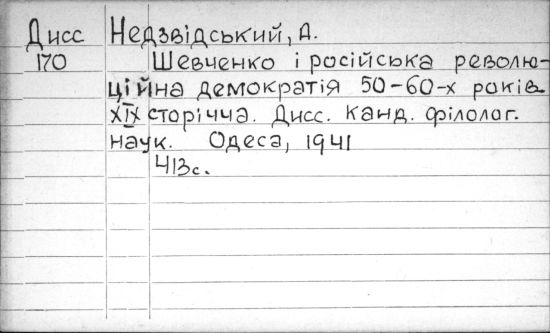 Дисс Недзвідський, А.
170 Шевченко і російська револю-
ційна демократія 50-60-х років
XIX сторічча. Дисс. канд. філолог.
наук. Одеса, 1941
413с.